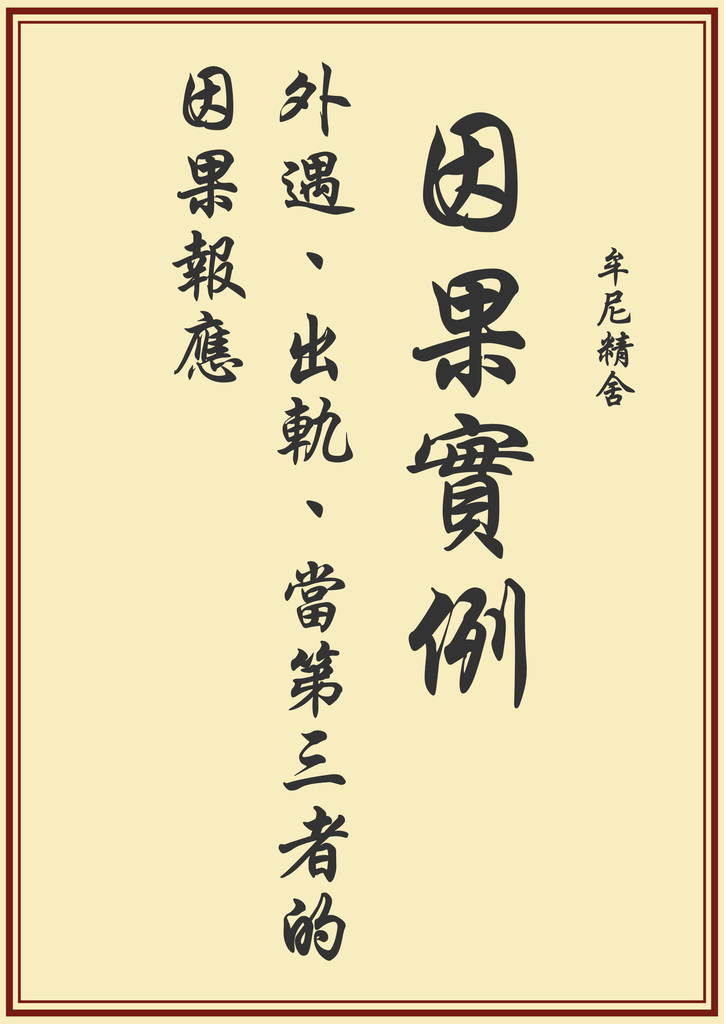 牟尼精舍
因果實例
外遇、出軌、當第三者的
因果報應